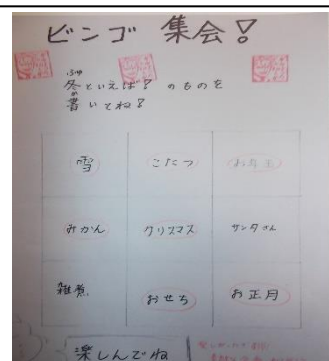 ビンゴ 集会!
冬といえば?のものを
書いてね!
雪 こたつ お年玉
みかん クリスマス サンタさん
雑煮 おせち お正月
楽しんでね